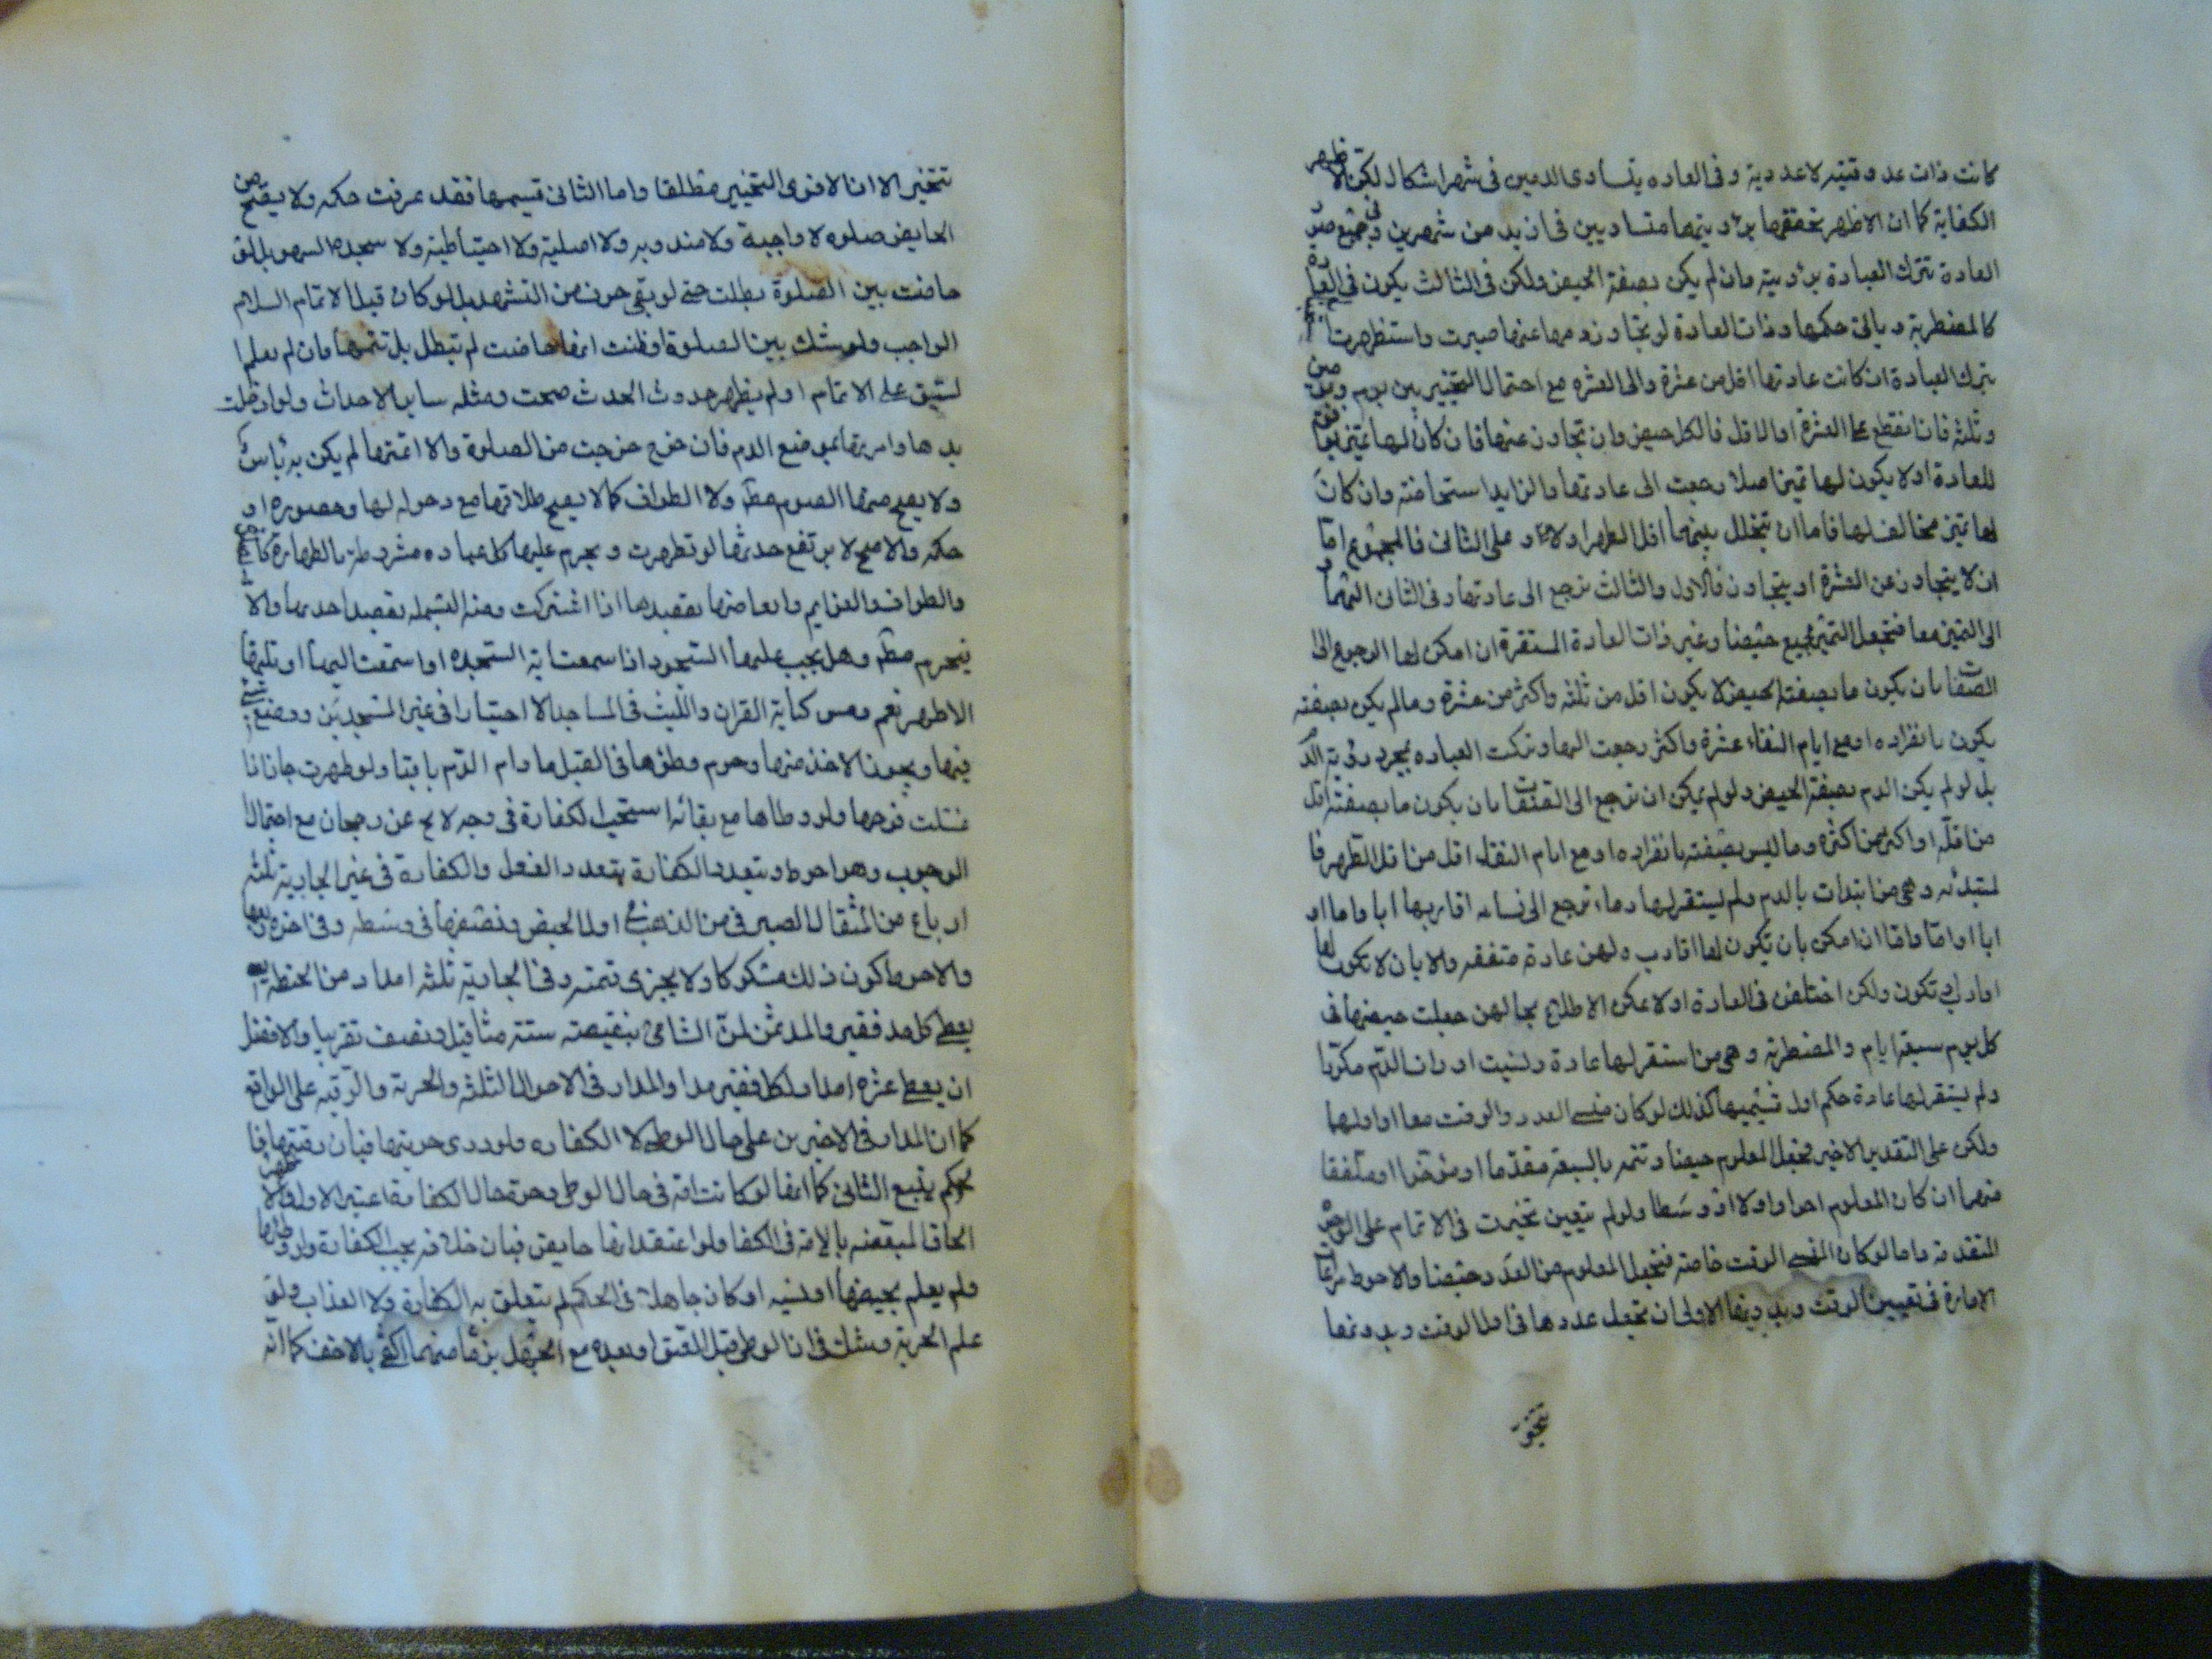 كانت ذات عد وقتيه لاعددية وفى العاده يتساوى الدمين فى شهر اشكال لكن الاظهر
الكفاية كما ان الاظهر تحققها برؤيتها متساويين فى ازيد من شهرين وفى جميع صور
العادة تترك العبادة برؤيته وان لم يكن بصفة الحيض ولكن فى الثالث يكون فى العادة
كالمضطربة وياتى حكمها وذات العادة لو تجاوز دمها عنها صبرت واستظهرت
بترك العبادة ان كانت عادتها اقل من عشرة والى العشره مع احتمال التخيير بين يوم ويومين
وثلثه فان انقطع على العشرة او الاقل فالكل حيض وان تجاوز عنها فان كان لها تميز موافق
للعادة اولا يكون لها تميز اصلا رجعت الى عادتها والزايد استحاضته وان كان
لها تميز مخالف لها فاما ان يتخلل بينهما اقل الطهر اولا وعلى الثانى فالمجموع اما
ان لا يتجاوز عن العشرة او يتجاوز فالاول والثالث ترجع الى عادتها وفى الثانى اليهما
الى التميز معا فتجعل الجميع حيضا وغير ذات العادة المستقرة ان امكن لها الرجوع الى
الصفات بان يكون ما بصفته الحيض لا يكون اقل من ثلثه واكثر من عشرة وما لم يكن بصفته
يكون بانفراده او مع ايام النقاء عشرة واكثر رجعت اليها وتركت العباده بمجرد رؤية الدم
بل لو لم يكن الدم بصفة الحيض ولو لم يمكن ان ترجع الى الصفات بان يكون ما بصفته اقل
من اقله او اكثر من اكثره وما ليس بصفته بانفراده او مع ايام النقاء اقل من اقل الطهر فا
لمبتدئه وهى من ابتدات بالدم ولم يستقر لها دماء ترجع الى نساء اقاربها ابا واما او
ابا او اما واما ان امكن بان تكون لها اقارب ولهن عادة متفقه والا بان لا تكون لها
اقارب او تكون ولكن اختلفن فى العادة او لا يمكن الاطلاع بحالهن جعلت حيضها فى
كل سبعة ايام والمضطربة وهى من استقر لها عادة ونسيت او رات الدم مكررا
ولم يستقر لها عادة حكم اول قسميها كذلك لو كان منسى العدد والوقت معا او اولهما
ولكن على التقدير الاخير تجعل المعلوم حيضا وتتمه بالسبعه مقدما او مؤخرا او ملفقا
منهما ان كان المعلوم اخرا او اولا او وسطا ولو لم يتعين تخيرت فى الاتمام على الوجوه
المتقدمه واما لو كان المنسى الوقت خاصة فتجعل المعلوم من العدد حيضا والاحوط مراعات
الامارة فى تعيين الوقت وبدونها الاولى ان تجعل عددها فى اول الوقت وبدونها
تتخير
تتخير الا ان الاقوى التخيير مطلقا واما الثانى قسيمها فقد عرفت حكمه ولا يصح من
الحايض صلوه لا واجبة ولا مندوبه ولا اصلية ولا احتياطية ولا سجدة السهو بل لو
حاضت بين الصلوة بطلت حتى لو بقى حرف من التشهد بل لو كان قبل الاتمام السلام
الواجب ولو شك بين الصلوة او ظنت انها حاضت لم تبطل بل تتمها وان لم يعلم
لسبق على الاتمام او لم يظهر حدوث الحدث صحت ومثله ساير الاحداث ولو ادخلت
يدها وامرتها بموضع الدم فان خرج خرجت من الصلوة والا اتمتها لم يكن به باس
ولا يصح منها الصوم مطلقا ولا الطواف كما لا يصح طلاقها مع دخوله لها وحضوره او
حكمه والاصح لا يرتفع حدثها لو تطهرت ويحرم عليها كل عباده مشروطة بالطهارة
والطواف والعزايم وابعاضها بقصدها اذا اشتركت ومنه البسمله بقصد احديها والا
فيحرم مطلقا وهل يجب عليها السجود اذا سمعت اية السجده او استمعت اليها او تليها
الاظهر نعم ومس كتابة القران واللبث فى المساجد الا اجتيازا فى غير المسجدين ووضع شئ
فيها ويجوز الاخذ منها وحرم وطؤها فى القبل ما دام الدم باقيا ولو طهرت جاز اذا
غسلت فرجها ولو وطاها مع بقائه استحب الكفارة فى وجه لا يخ عن رجحان مع احتمال
الوجوب وهو احوط وتتعدد الكفارة بتعدد الفعل والكفارة فى غير الجارية ثلثه
ارباع من المثقال الصيرفى من الذهب فى اول الحيض ونصفها فى وسطه وفى اخره ربعها
والاحوط كون ذلك مسكوكا ولا يجزى قيمته وفى الجارية ثلثه امداد من الحنطه
يعطى كل مد فقير والمد ثمن لمن الشاهى بنقيصته ستته مثاقيل ونصف تقريبا والافضل
ان يعطى عشره امداد لكل فقير مدا والمدار فى الاحوال الثلثه والحرية والرقيه على الواقع
كما ان المدار فى الاخيرين على حال الوطى لا الكفاره ولو درى حريتها فبان رقيتها فا
لحكم يتبع الثانى كما انها لو كانت امة فى حال الوطى وحرة حال الكفارة اعتبر الاول والاظهر
الحاق المبعضه بالامة فى الكفا ولو اعتقد انها حايض فبان خلافه يجب الكفارة ولو وطئها
ولم يعلم بحيضها او نسيه او كان جاهلا فى الحكم لم يتعلق به الكفارة ولا العذاب ولو
علم الحرية وشك فى ان الوطى قبل العتق او بعده مع الجهل بزمانهما اكتفى بالاخف كما انه